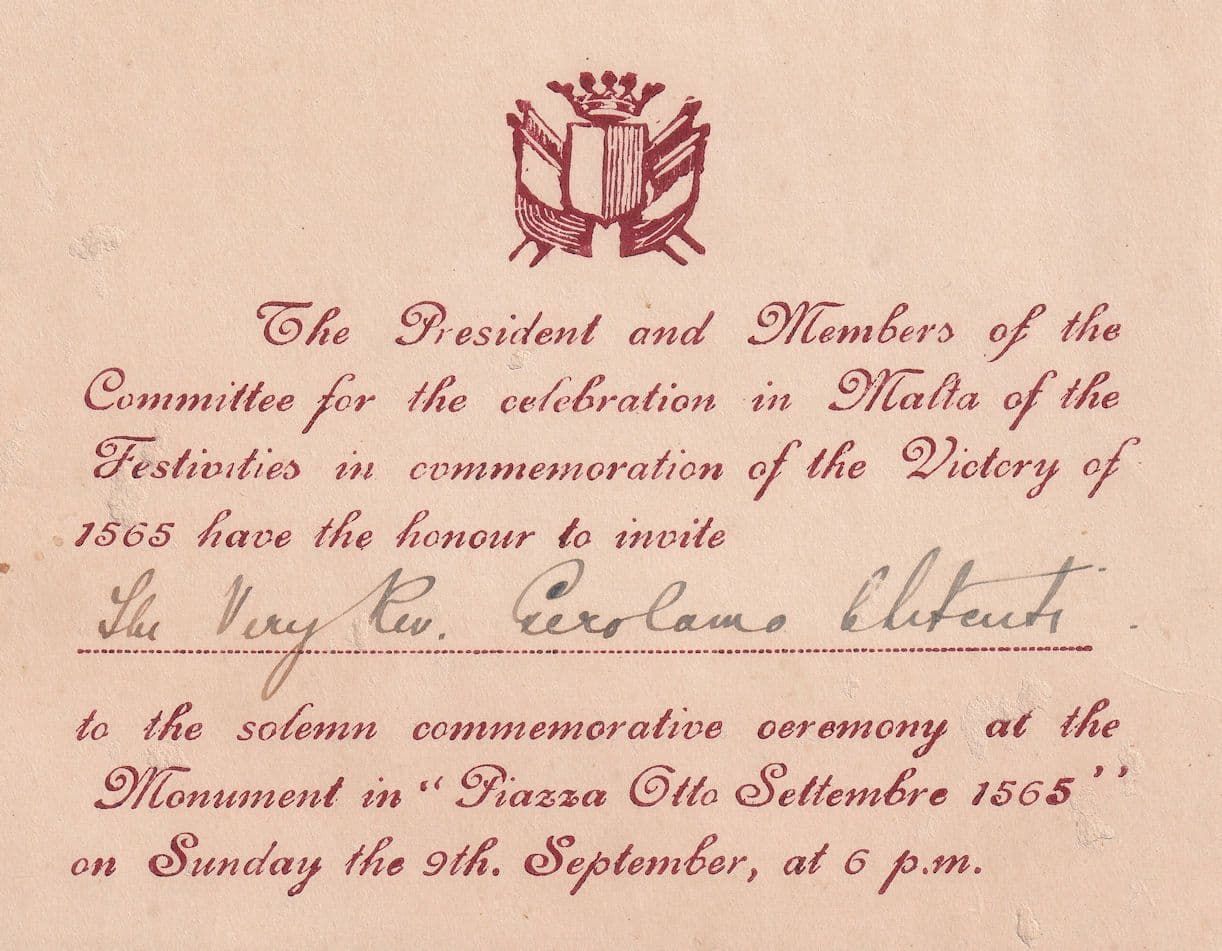 The President and Members of the
Committee for the celebration in Malta of the
Festivities in commemoration of the Victory of
1565 have the honour to invite
The Very Rev. Gerolamo
to the solemn commemorative ceremony at the
Monument in “ Piazza Otto Settembre 1565 ’’
on Sunday the 9th. September, at 6 p.m.